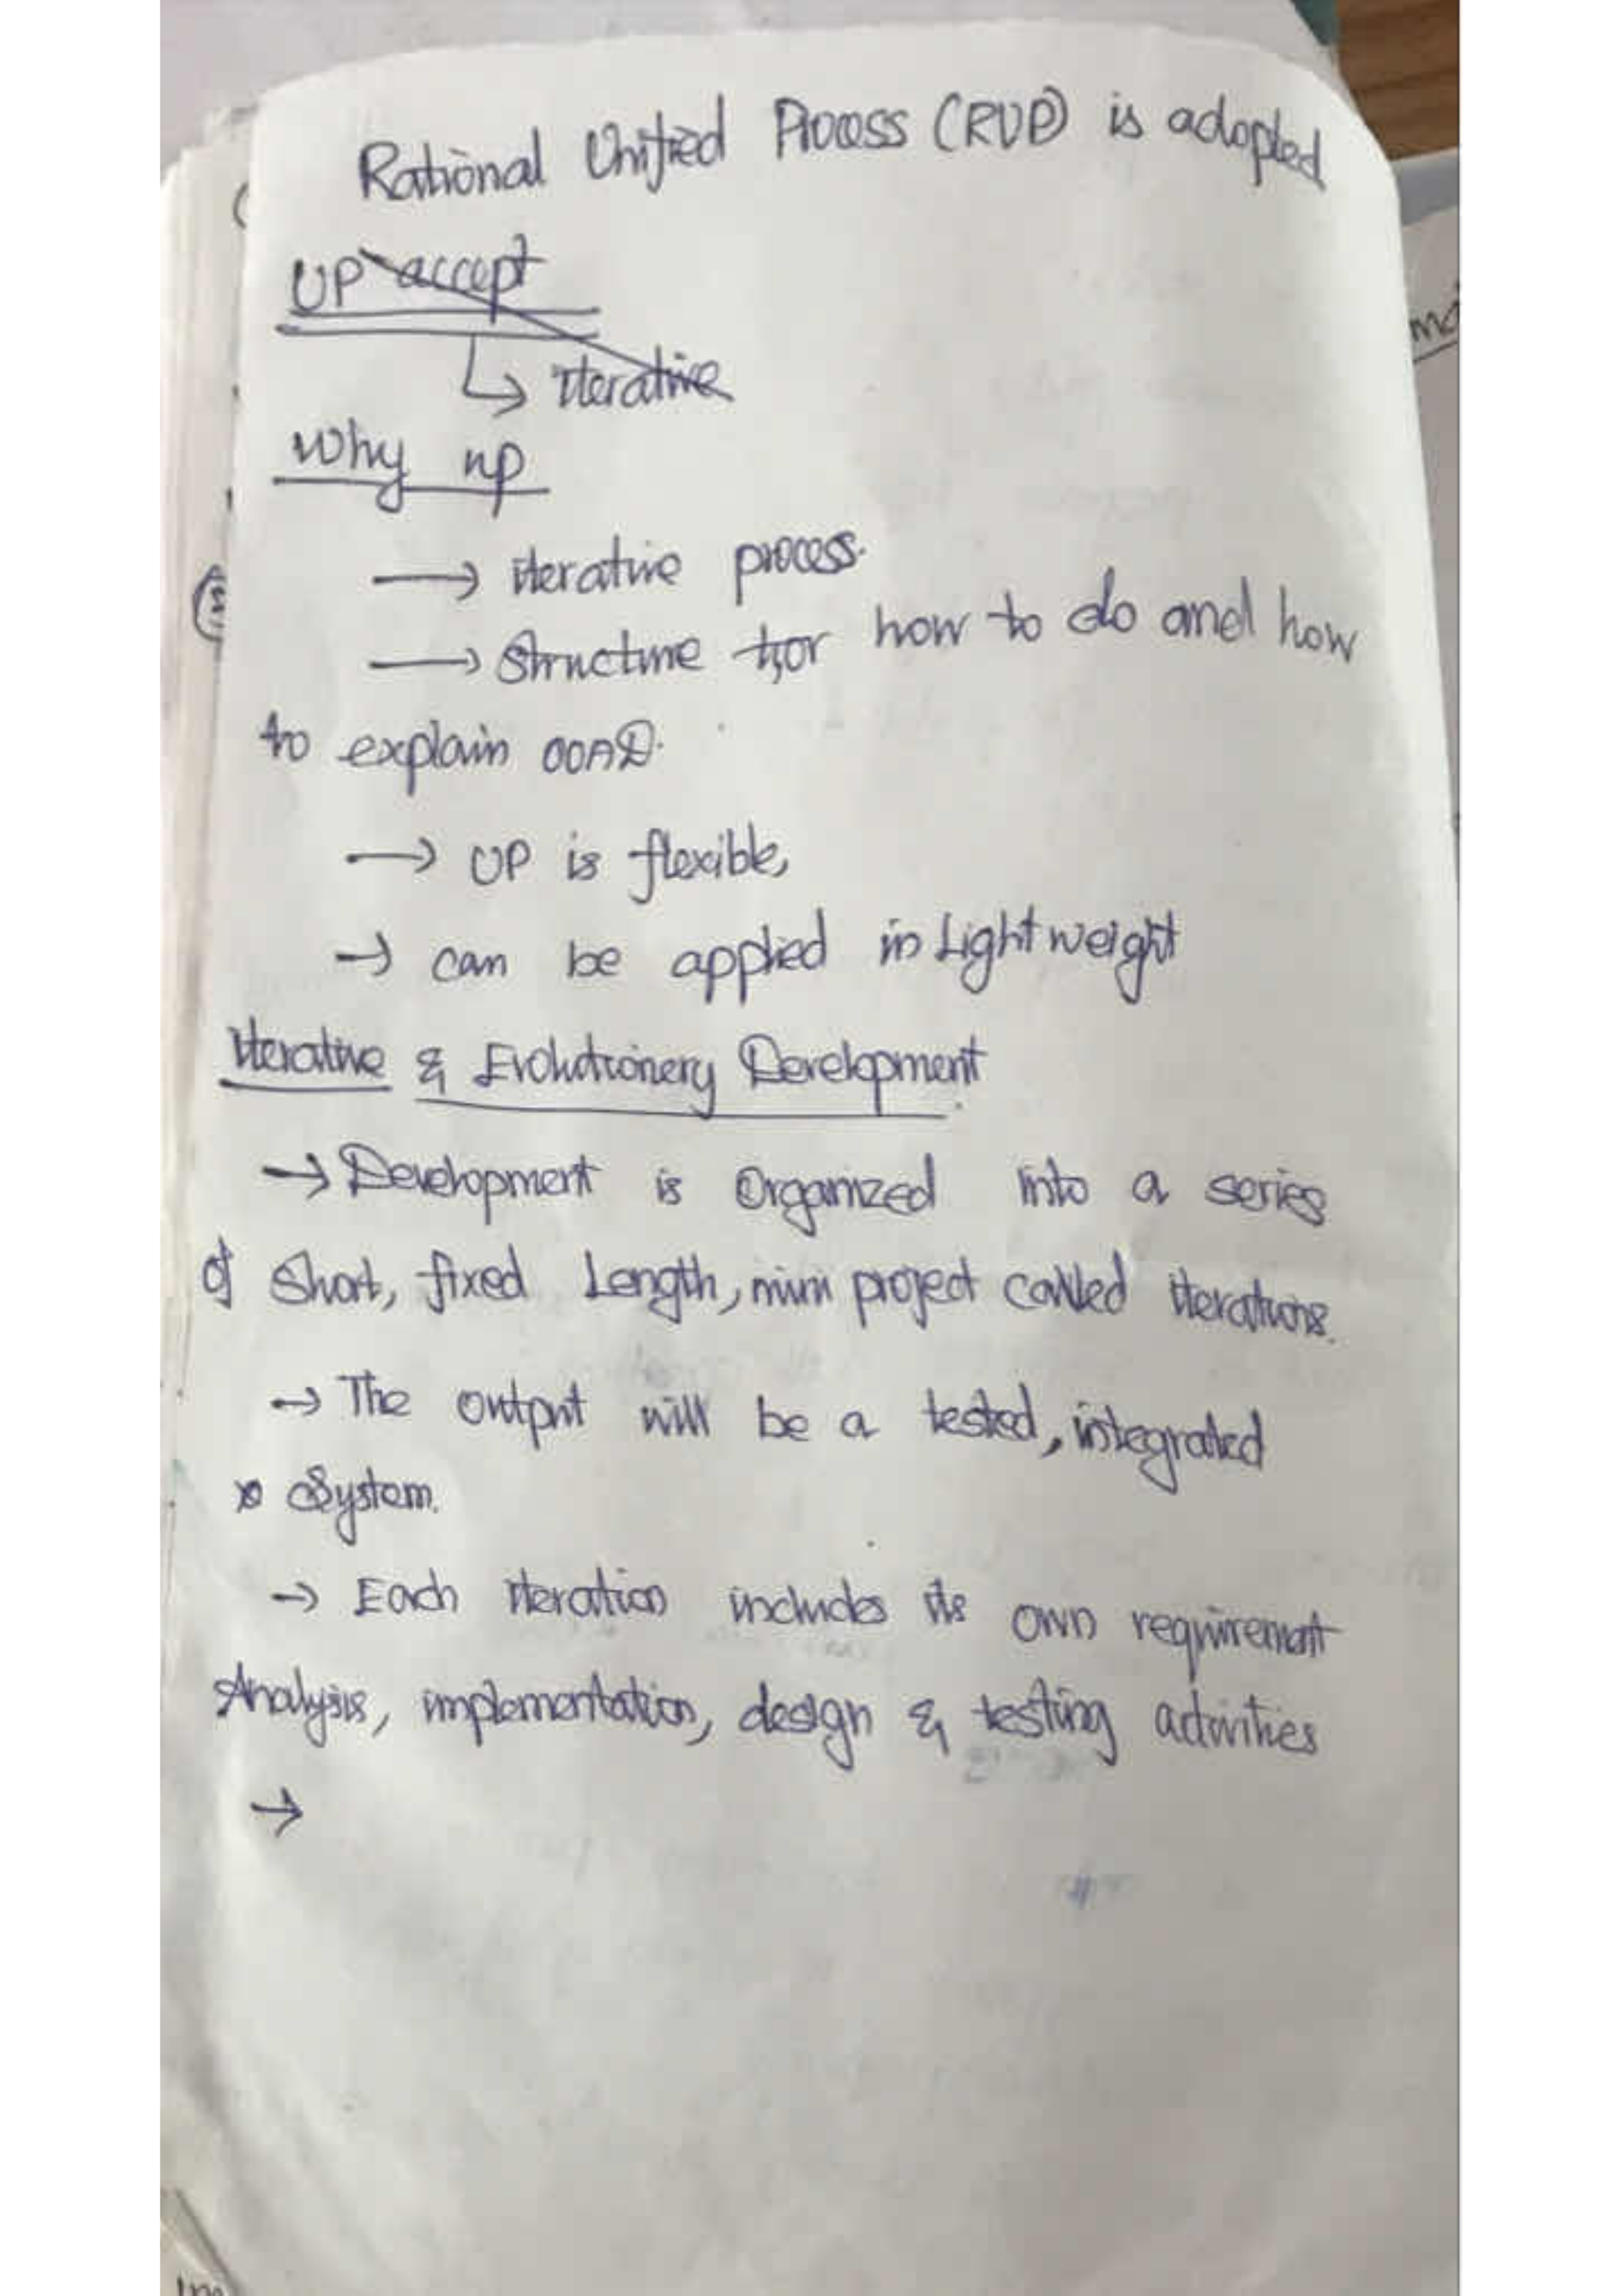 Rational Unified Process (RUP) is adopted
UP accept
↳ iterative
Why up
→ iterative process.
→ Structure for how to do and how
to explain OOAD.
→ UP is flexible,
→ can be applied in Light weight
Iterative & Evolutionery Development
→ Development is Organized into a series
of Short, fixed Length, mini project called iterations.
→ The output will be a tested, integrated
System.
→ Each iteration includes its own requirement
Analysis, implementation, design & testing activities
→